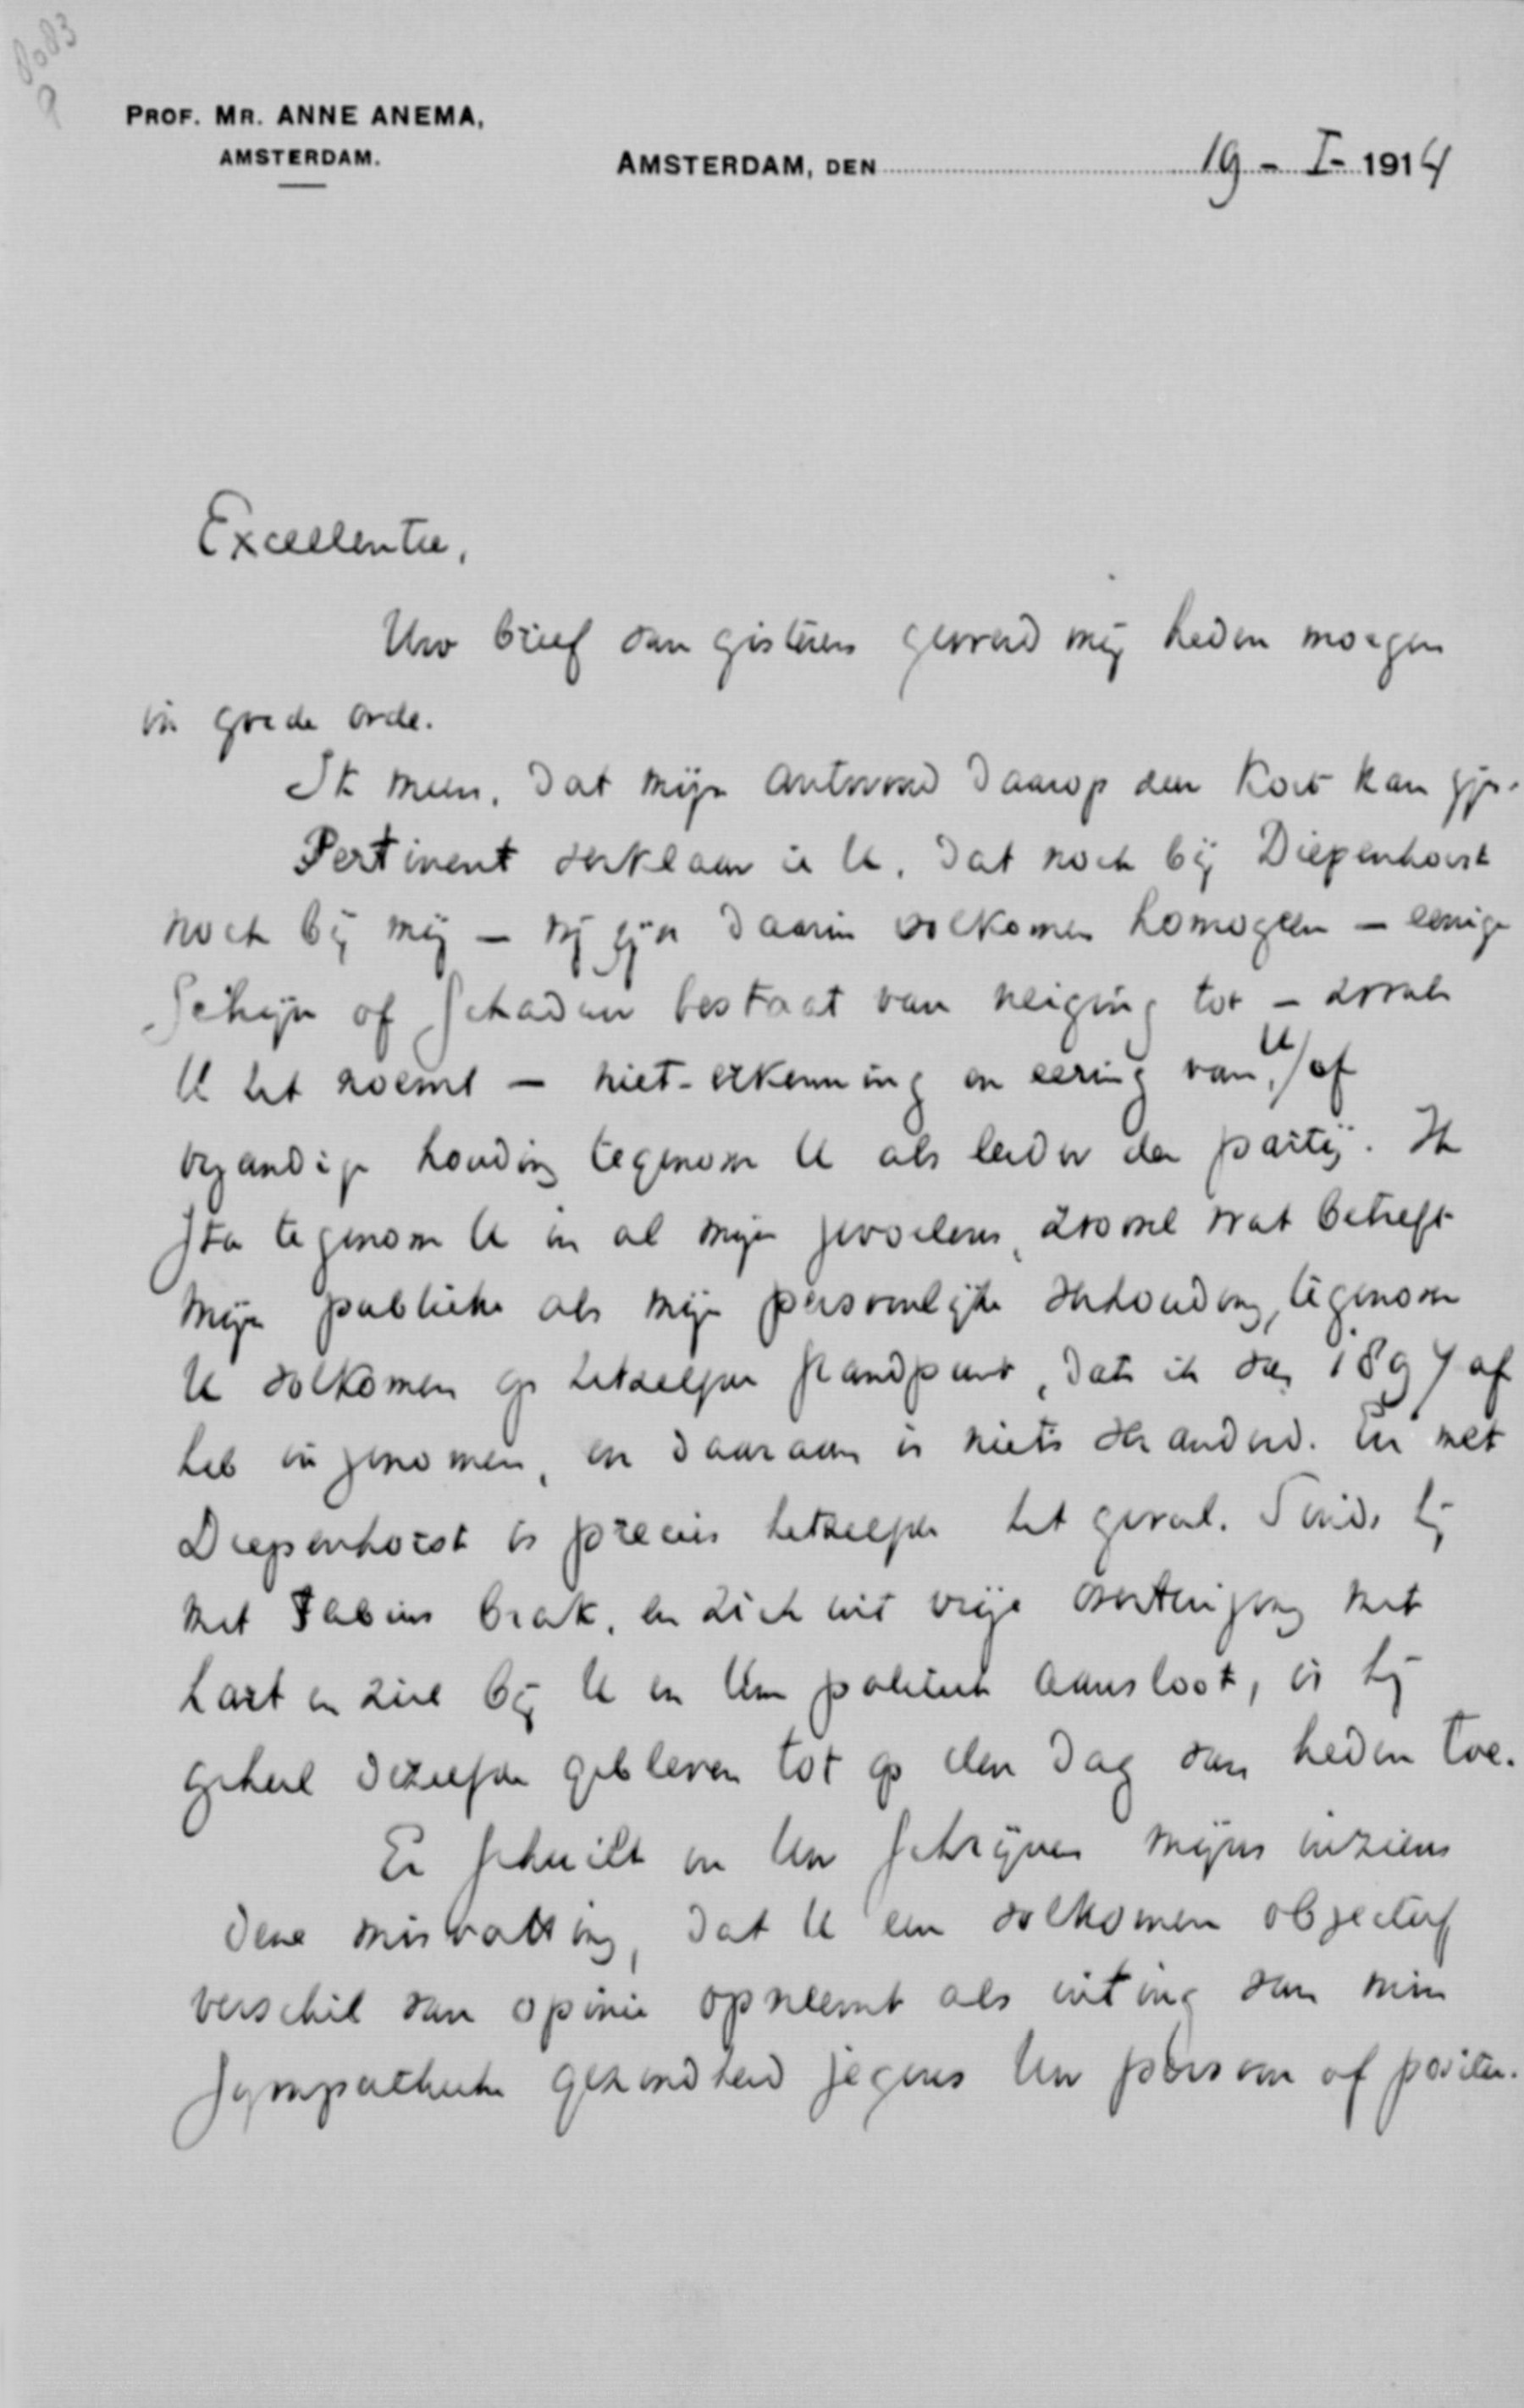 8083
PROF. MR. ANNE ANEMA,
AMSTERDAM.
AMSTERDAM, DEN 19 - I - 1914
Excellentie,
Uw brief van gisteren gewerd mij heden morgen
in goede orde.
Ik meen, dat mijn antwoord daarop zeer kort kan zijn.
Pertinent verklaar ik U, dat noch bij Diepenhorst
noch bij mij – wij zijn daarin volkomen homogeen – eenige
schijn of schaduw bestaat van neiging tot – zooals
U het noemt – niet-erkenning en eering van U, / of
vijandige houding tegenover U als leider der partij. Ik
sta tegenover U in al mijn gevoelens, zoowel wat betreft
mijn publieke als mijn persoonlijke verhouding, tegenover
U volkomen op hetzelfde standpunt, dat ik van 1897 af
heb ingenomen, en daaraan is niets veranderd. En met
Diepenhorst is precies hetzelfde het geval. Sinds hij
met Fabius brak, en zich uit vrije overtuiging met
hart en ziel bij U en Uw politiek aansloot, is hij
geheel dezelfde gebleven tot op den dag van heden toe.
Er schuilt in Uw schrijven mijns inziens
deze misvatting, dat U een volkomen objectief
verschil van opinie opneemt als uiting van min
sympathieke gezindheid jegens Uw persoon of positie.